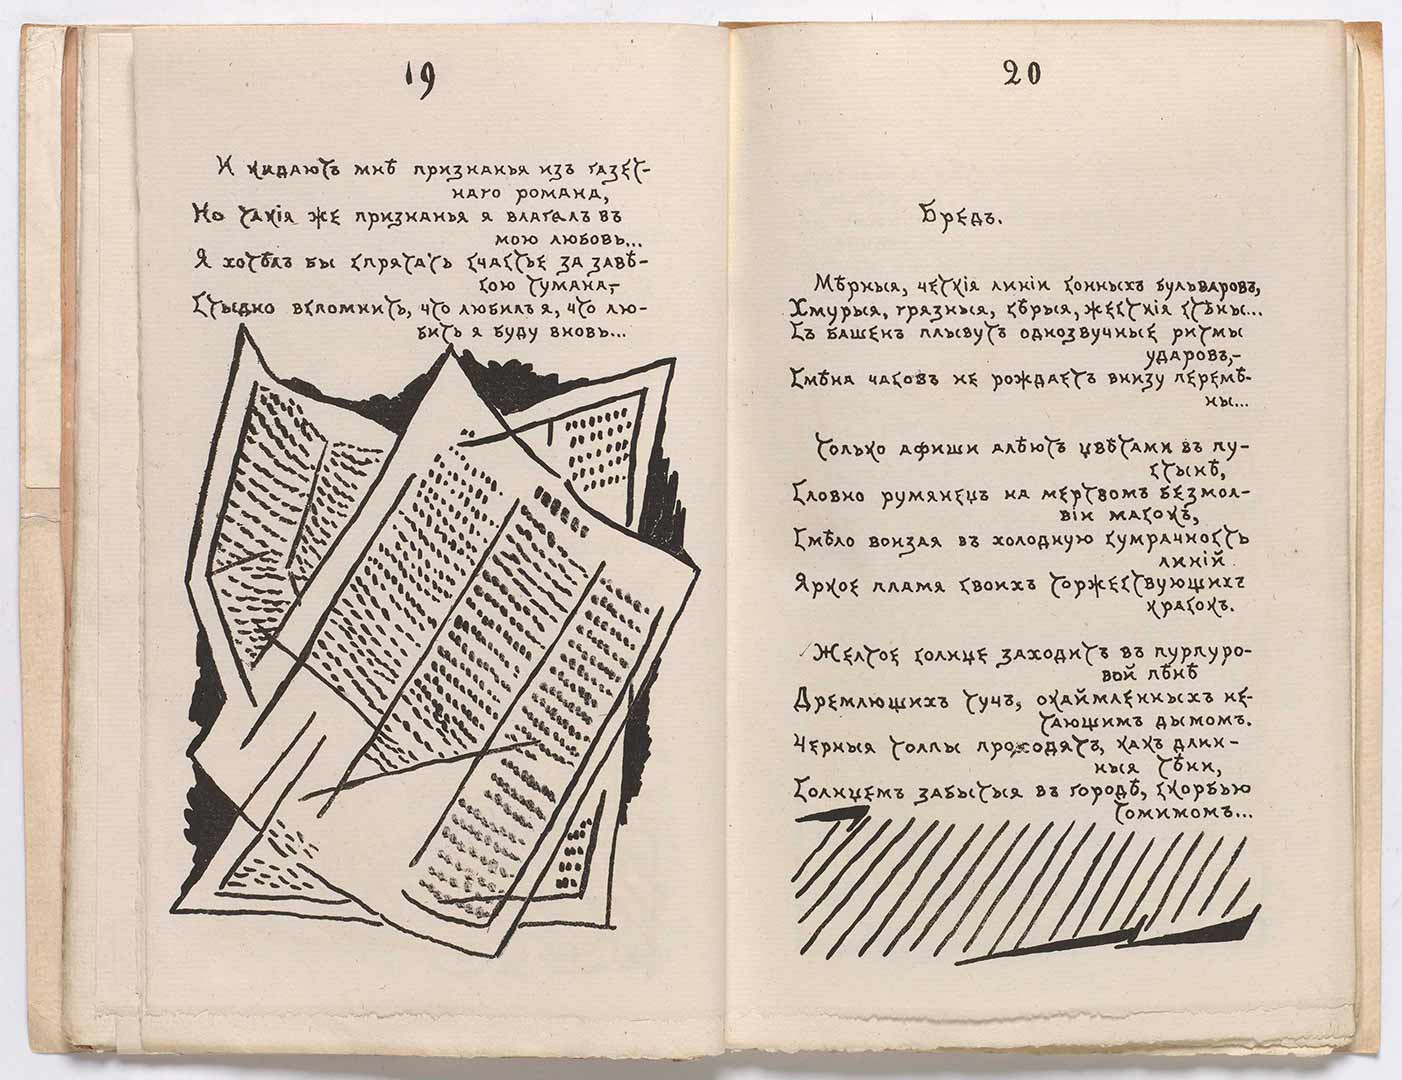 19
И кидаютъ мнѣ признанья изъ газет-
наго романа,
Но такія же признанья я влагалъ въ
мою любовь...
Я хотѣлъ бы спрятать счастье за завѣ-
сою тумана,-
Стыдно вспомнить, что любилъ я, что лю-
бить я буду вновь...
20
Бредъ.
Мѣрныя, четкія линіи сонныхъ бульваровъ,
Хмурыя, грязныя, сѣрыя, жесткія стѣны...
Съ башенъ плывутъ однозвучные ритмы
ударовъ,-
Смѣна часовъ не рождаетъ внизу перемѣ-
ны...
Только афиши алѣютъ цвѣтами въ пу-
стынѣ,
Словно румянецъ на мертвомъ безмол-
віи масокъ,
Смѣло вонзая въ холодную сумрачность
линій
Яркое пламя своихъ торжествующихъ
красокъ.
Желтое солнце заходитъ въ пурпуро-
вой пѣнѣ
Дремлющихъ тучъ, окаймленныхъ не-
тающимъ дымомъ.
Черныя толпы проходятъ, какъ длин-
ныя тѣни,
Солнцемъ забытыя въ городѣ, скорбью
томимомъ...